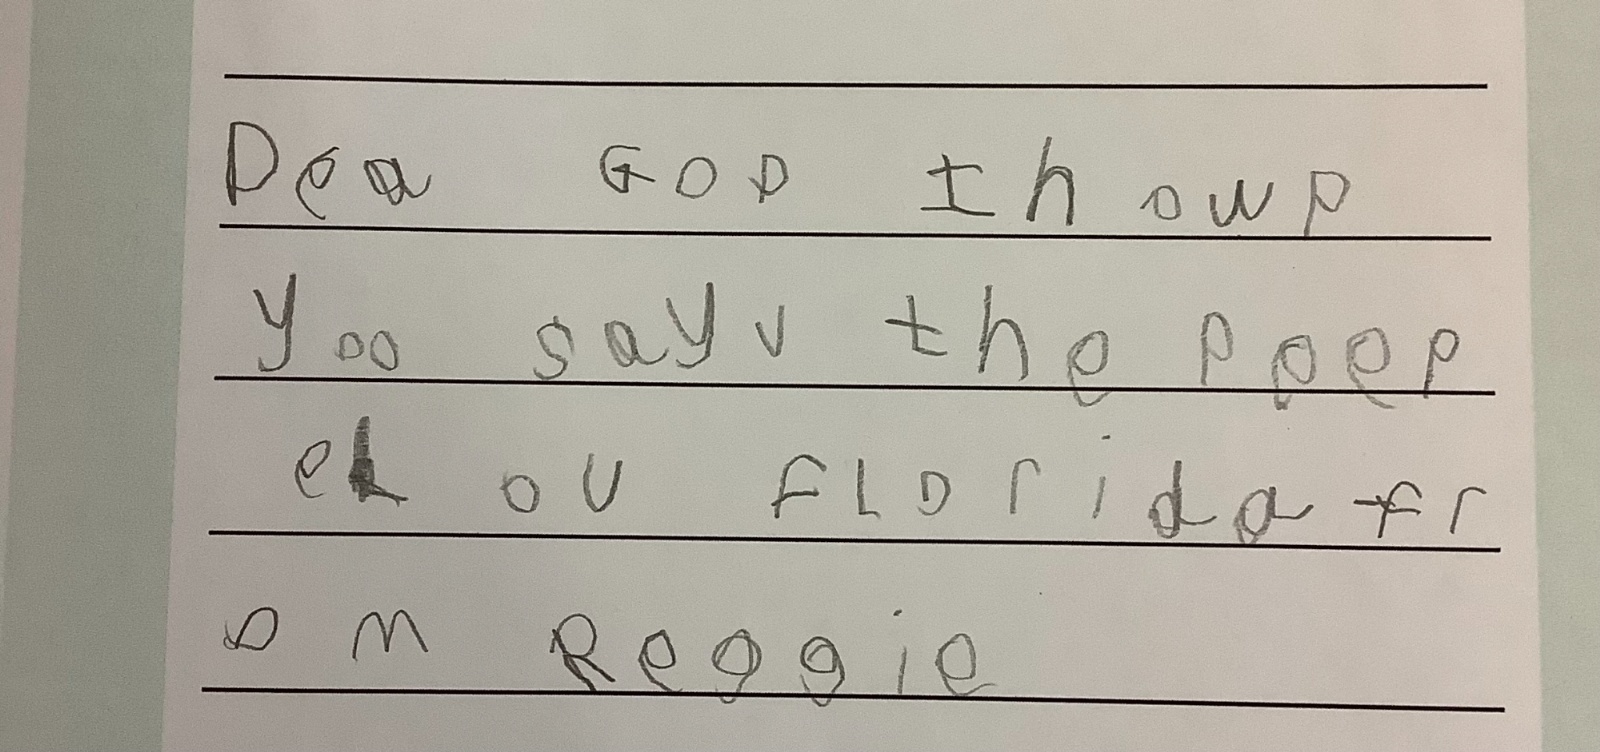 Dea GOD I howp
yoo sayv the peep
el ov Florida fr
om Reggie